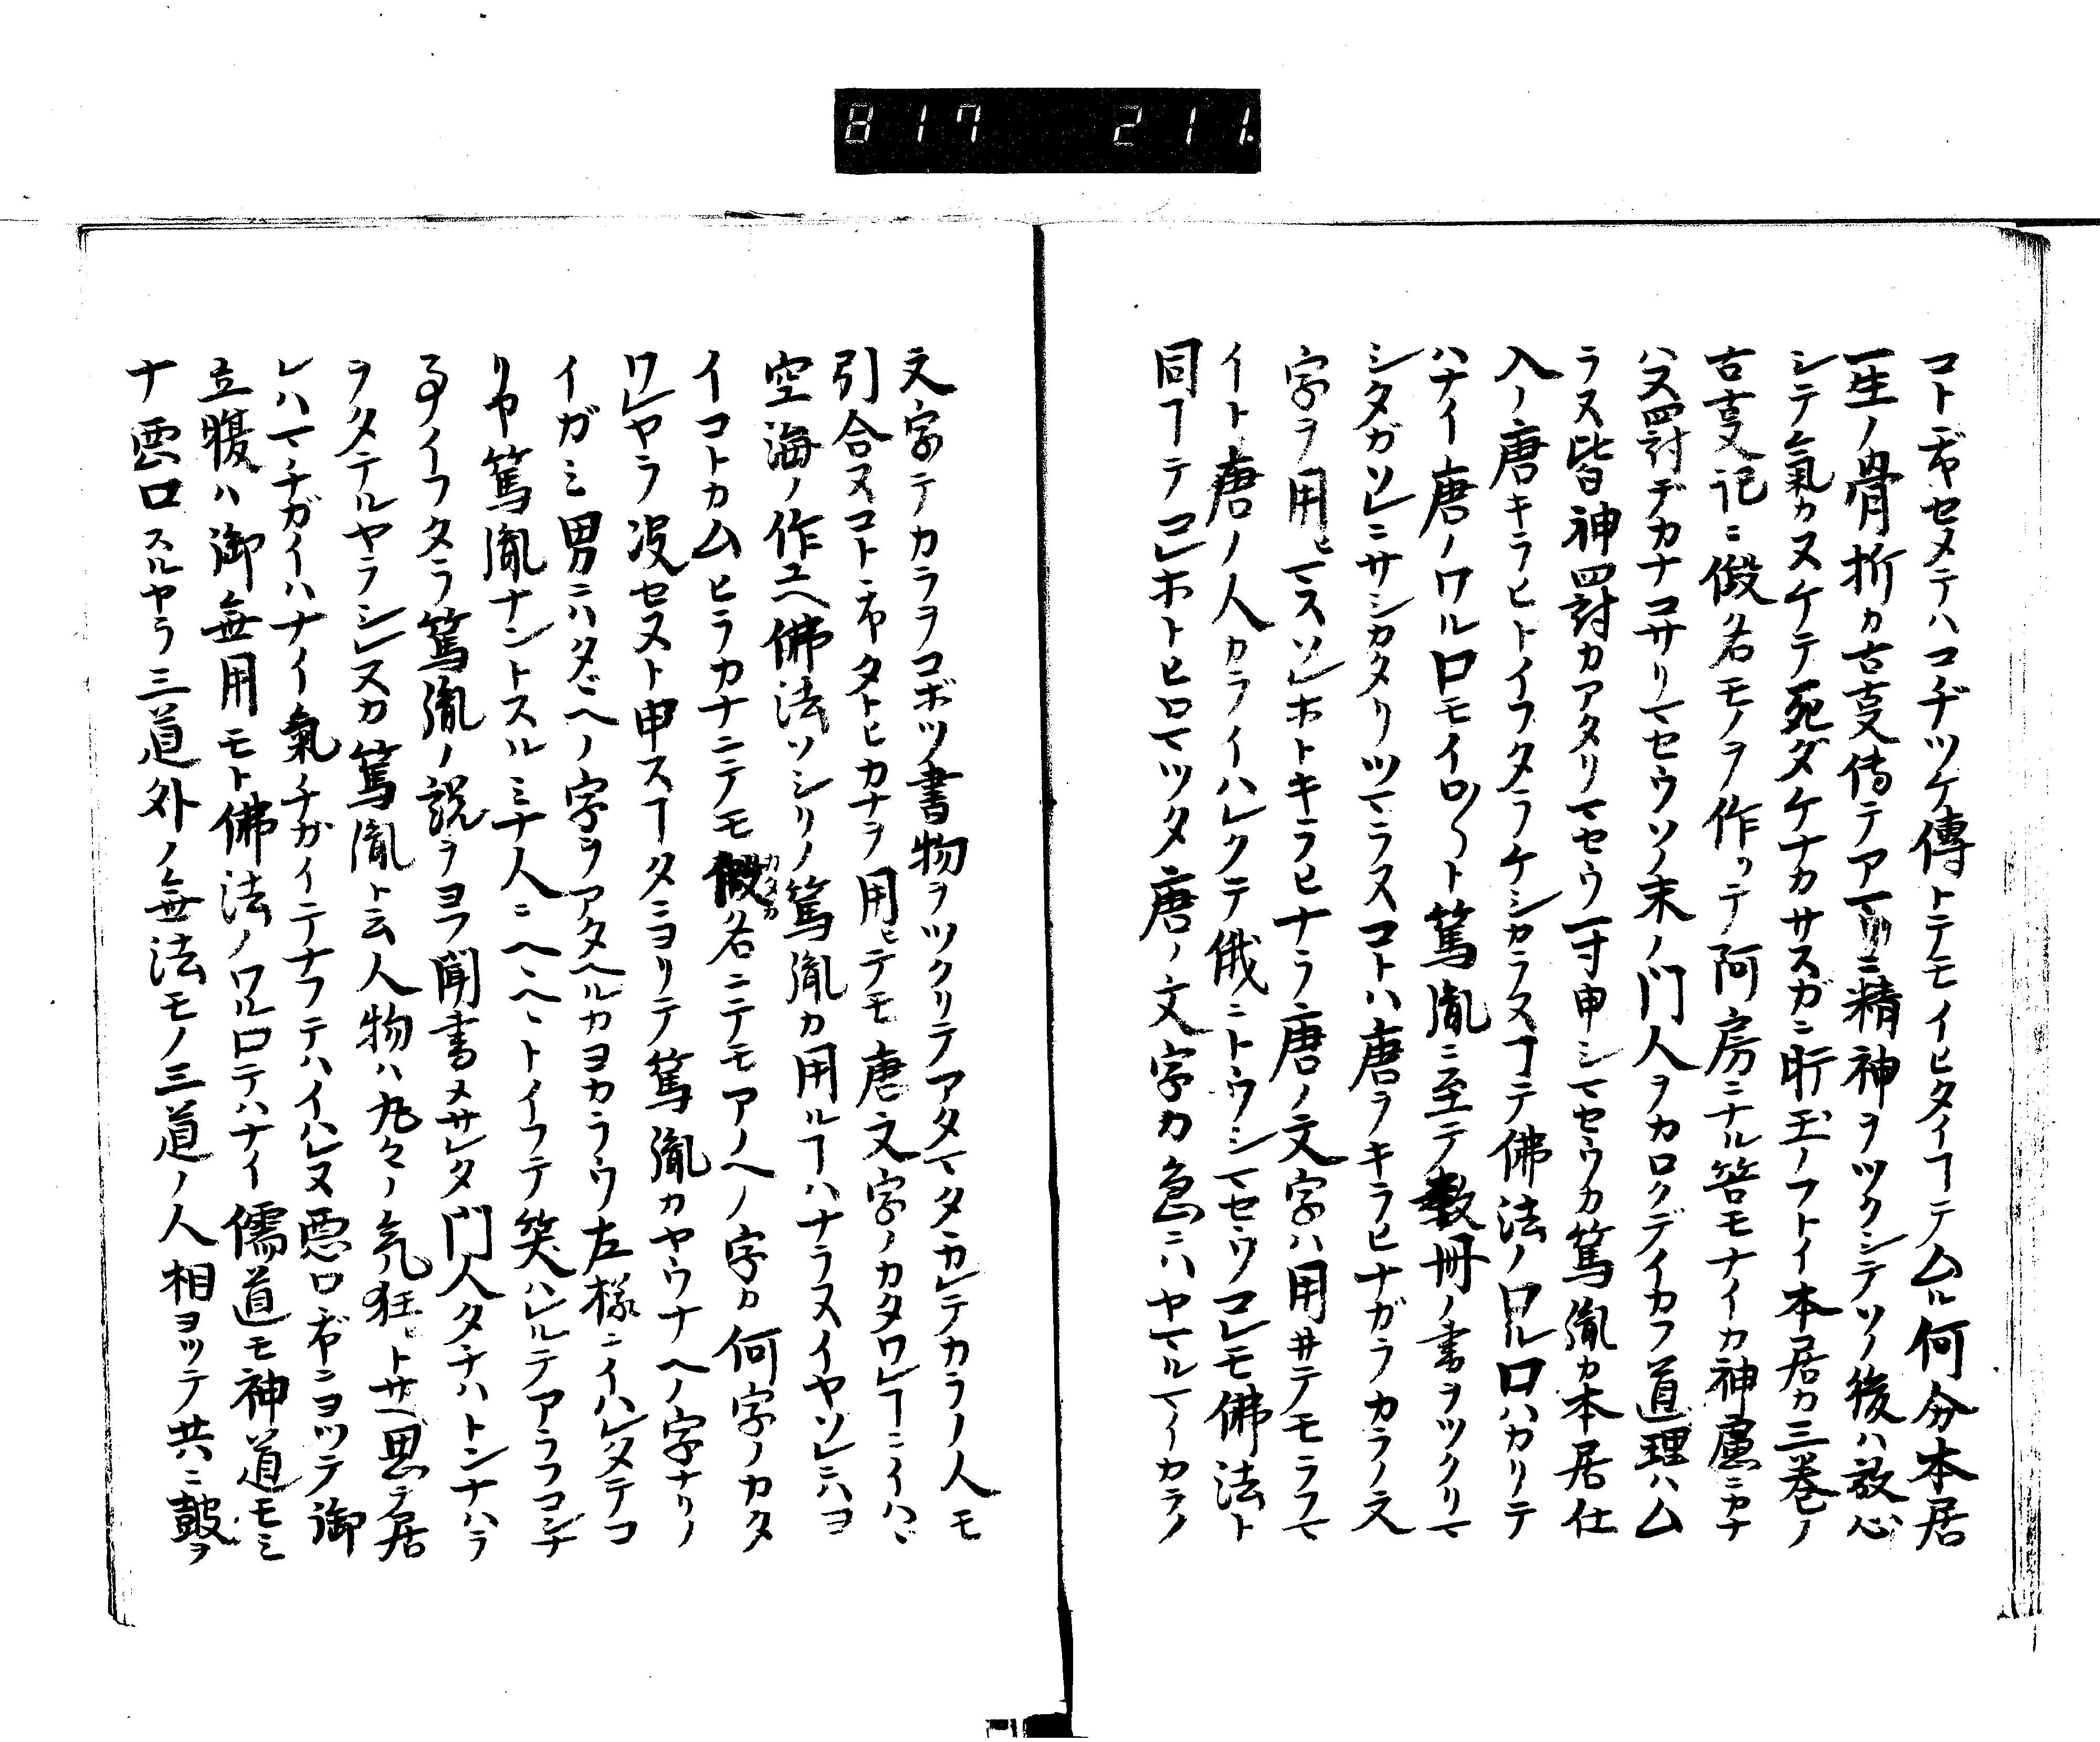 817 211.
コトヂヤセメテハコヂツケ傳トテモイヒタイヿテム儿何分本居
一生ノ骨折カ古叓傳テアマリニ精神ヲツクシテソノ後ハ放心
シテ氣カヌケテ死ダケナカサスガニ昕玉ノフトイ本居カ三巻ノ
古叓記ニ假名モノヲ作リテ阿房ニナル筈モナイカ神慮ニカナ
ハヌ罸デカナコサリマセウソノ末ノ門人ヲカロクデイカフ道理ハム
ラヌ皆神罸カアタリマセウ一寸申シマセウカ篤胤カ本居仕
入ノ唐キラヒトイフタラケシカラヌヿテ佛法ノワル口ハカリテ
ハナイ唐ノワル口モイロ〳〵ト篤胤ニ至テ数冊ノ書ヲツクリマ
シタガソレニサシカタリツマラヌコトハ唐ヲキラヒナガラカラノ文
字ヲ用ヒマスソレホトキラヒナラ唐ノ文字ハ用井テモラフマ
イト唐ノ人カライハレクテ俄ニトウシマセウコレモ佛法ト
同ヿテコレホトヒロマツタ唐ノ文字カ急ニハヤマルマイカラノ
文字テカラヲコボツ書物ヲツクリテアタマタカレテカラノ人モ
引合ヌコトヂヤタトヒカナヲ用ヒテモ唐文字ノカタワレヿニイハヾ
空海ノ作ユヘ佛法ソシリノ篤胤カ用ルヿハナラヌイヤソレニハヨ
イコトカムヒラカナニテモ假名ニテモアノヘノ字カ何字ノカタ
カタカ
ワレヤラ没セヌト申スヿタニヨリテ篤胤カヤウナヘノ字ナリノ
イガミ男ニハタヾヘノ字ヲアタヘルカヨカラウ左様ニイハレタテコ
リヤ篤胤ナントスルミナ人ニヘヘヽトイフテ笑ハレルテアラフコンナ
事イフタラ篤胤ノ説ヲヨフ聞書メサレタ門人タチハトンナハラ
ヲタテルヤラシレヌカ篤胤ト云人物ハ丸々ノ気狂ヒトサヘ思テ居
レハマチガイハナイ氣チガイニテナフテハイハレヌ悪口ヂヤニヨツテ御
立腹ハ御無用モト佛法ノワル口テハナイ儒道モ神道モミ
ナ悪口スルヤラ三道外ノ無法モノ三道ノ人相ヨツテ共ニ皷ヲ